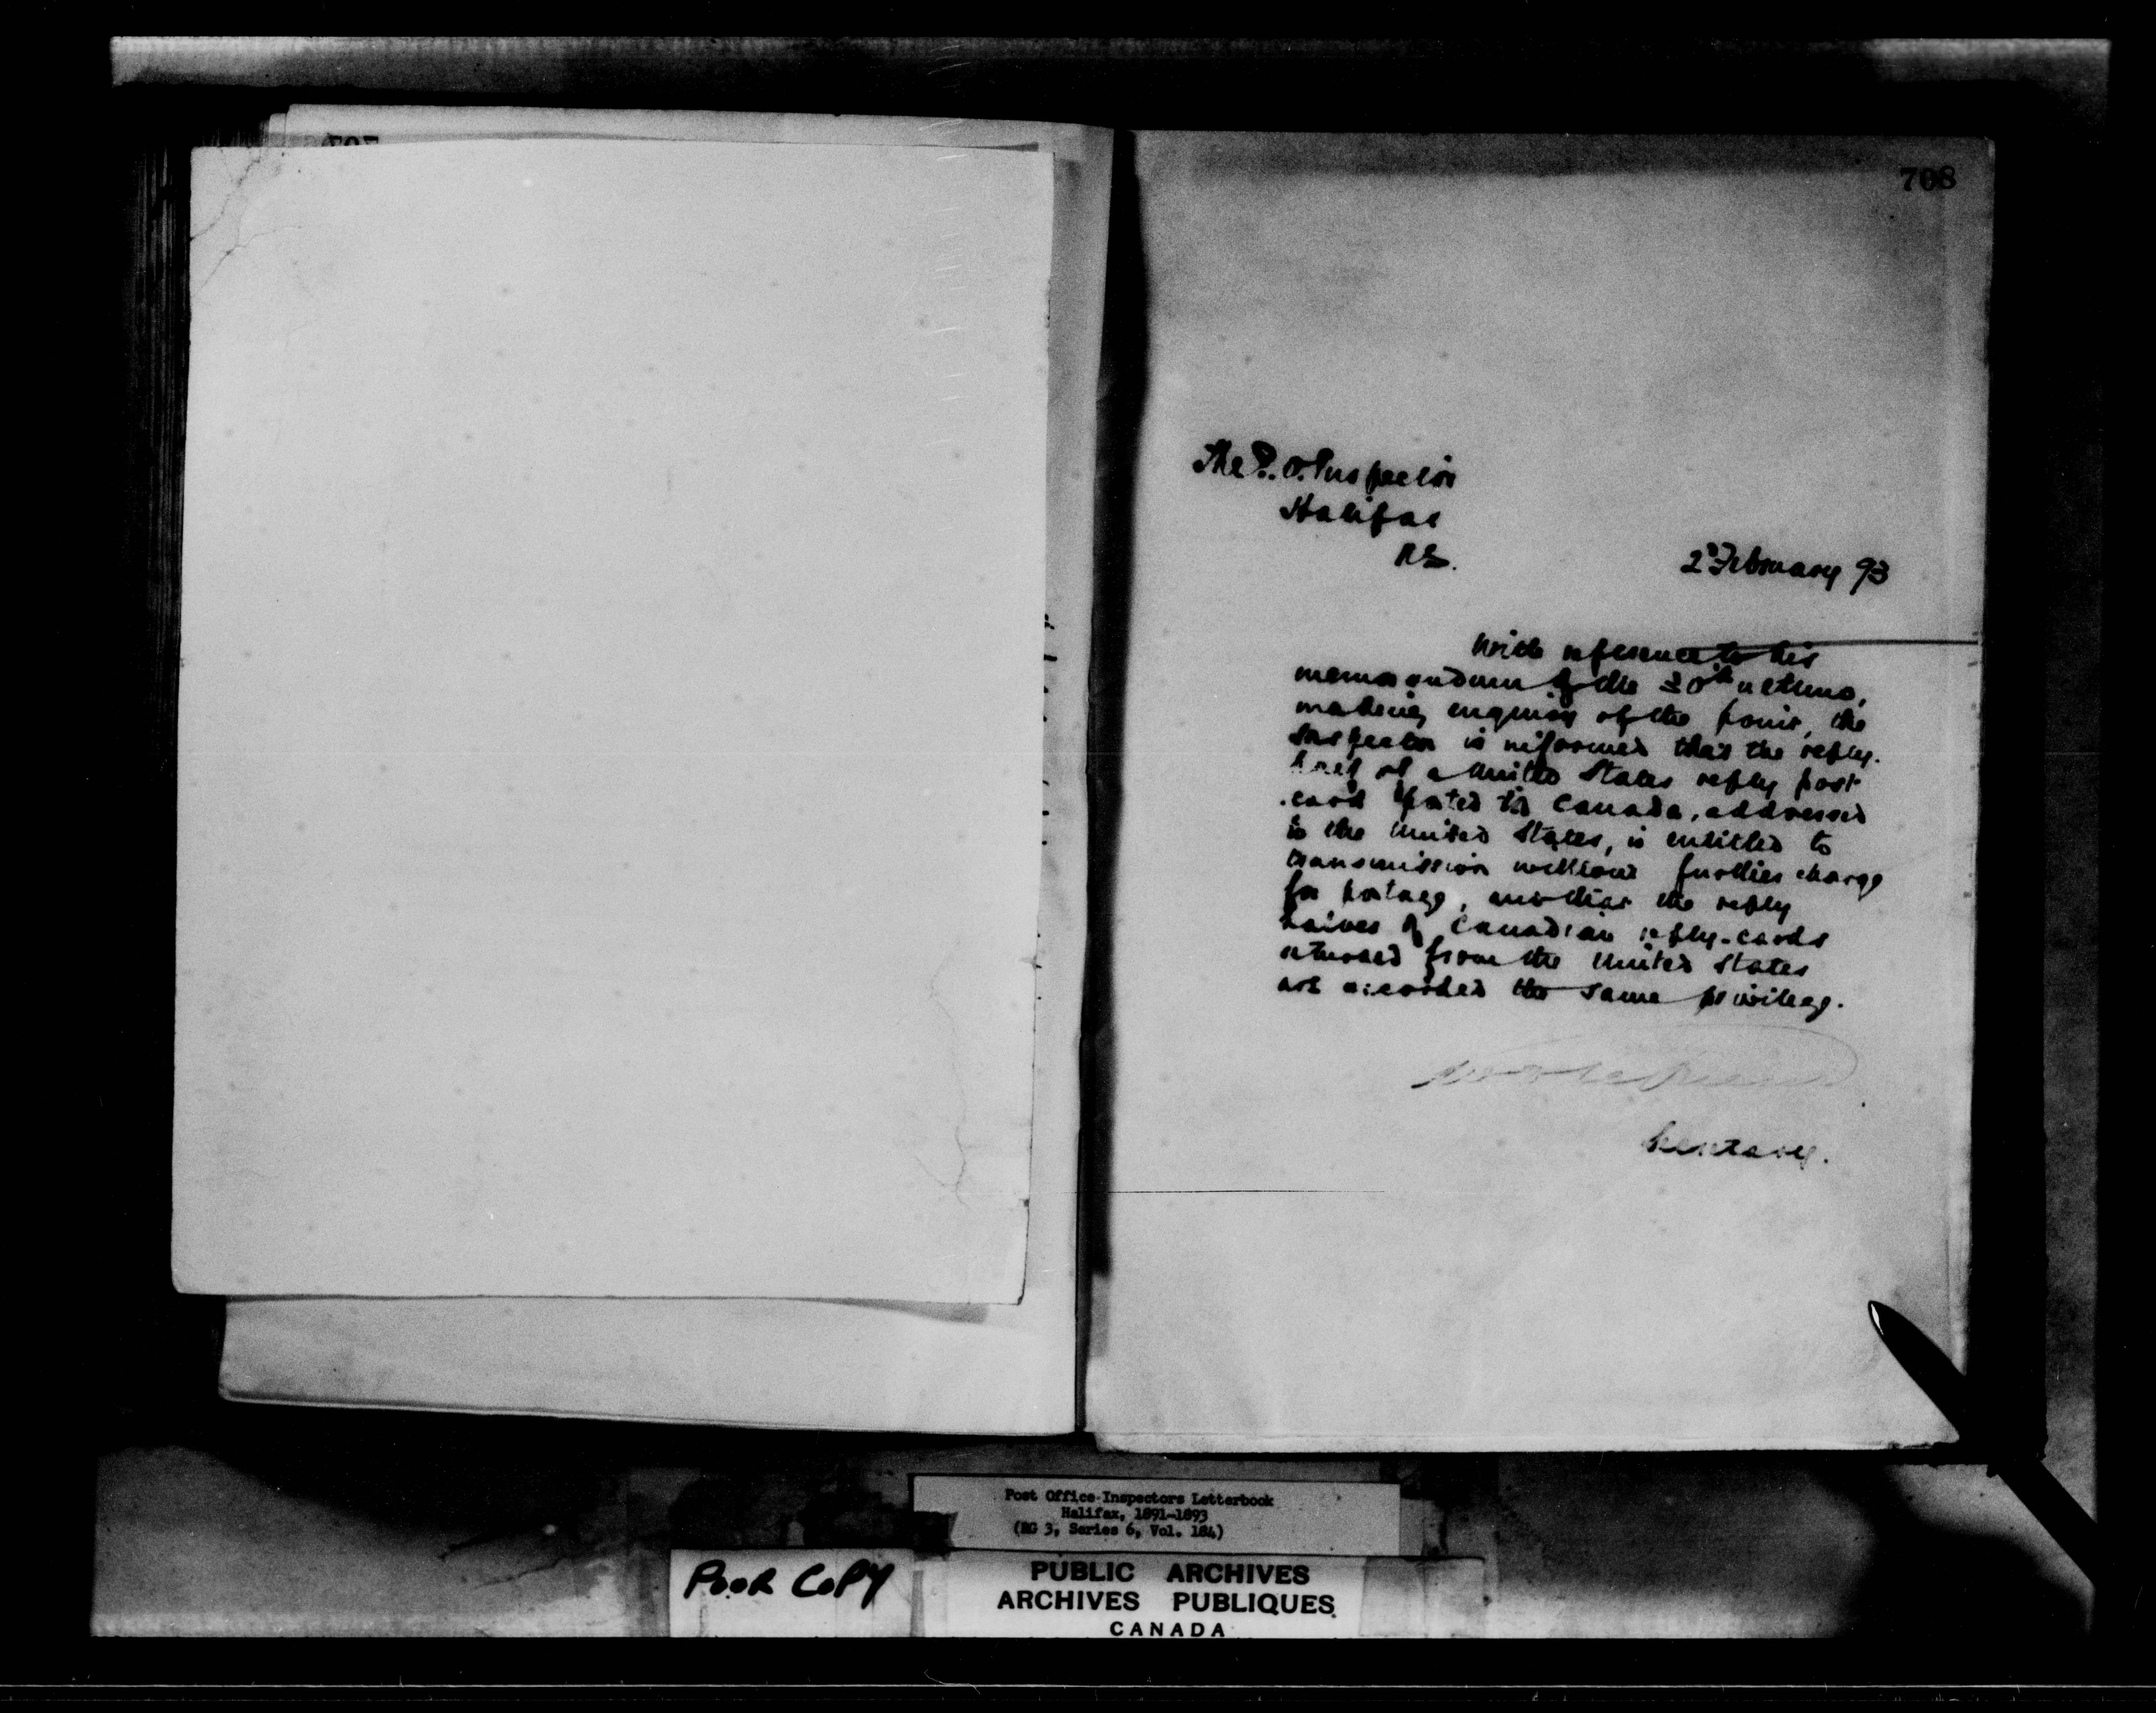 708
The P. O. Inspector
Halifax
N.S.
2 February 93
With reference to his
memorandum of the 30th ultimo,
making enquiry of the point, the
Inspector is informed that the reply-
half of a United States reply post
card posted in Canada, addressed
to the United States, is entitled to
transmission without further charge
for postage, and that the reply
halves of Canadian reply-cards
returned from the United States
are accorded the same privilege.
Secretary.
Post Office Inspectors Letterbook
Halifax, 1891-1893
(RG 3, Series 6, Vol. 184)
POOR COPY
PUBLIC ARCHIVES
ARCHIVES PUBLIQUES
CANADA